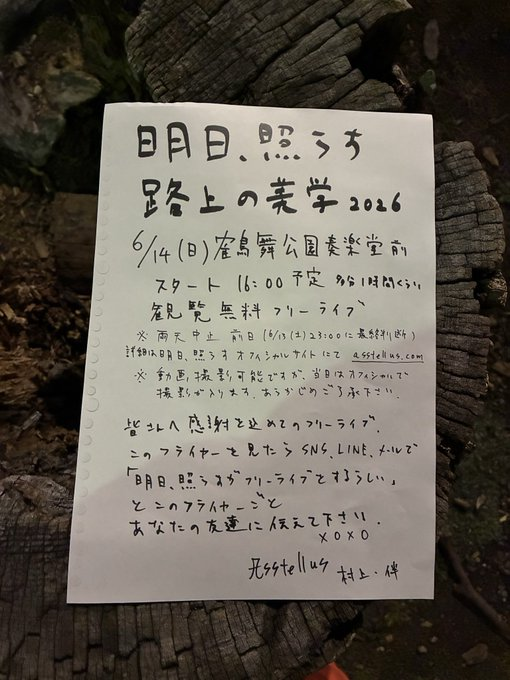 明日、照らす
路上の美学2026
6/14(日)鶴舞公園奏楽堂前
スタート 16:00 予定 多分1時間くらい
観覧無料フリーライブ
※ 雨天中止 前日(6/13(土)23:00に最終判断)
詳細は明日、照らすオフィシャルサイトにて asstellus.com
※ 動画、撮影可能ですが、当日はオフィシャルで
撮影が入ります。あらかじめご了承下さい。
皆さんへ感謝を込めてのフリーライブ。
このフライヤーを見たらSNS、LINE、メールで
「明日、照らすがフリーライブをするらしい」
とこのフライヤーごと
あなたの友達に伝えて下さい。
XOXO
Asstellus 村上・伴